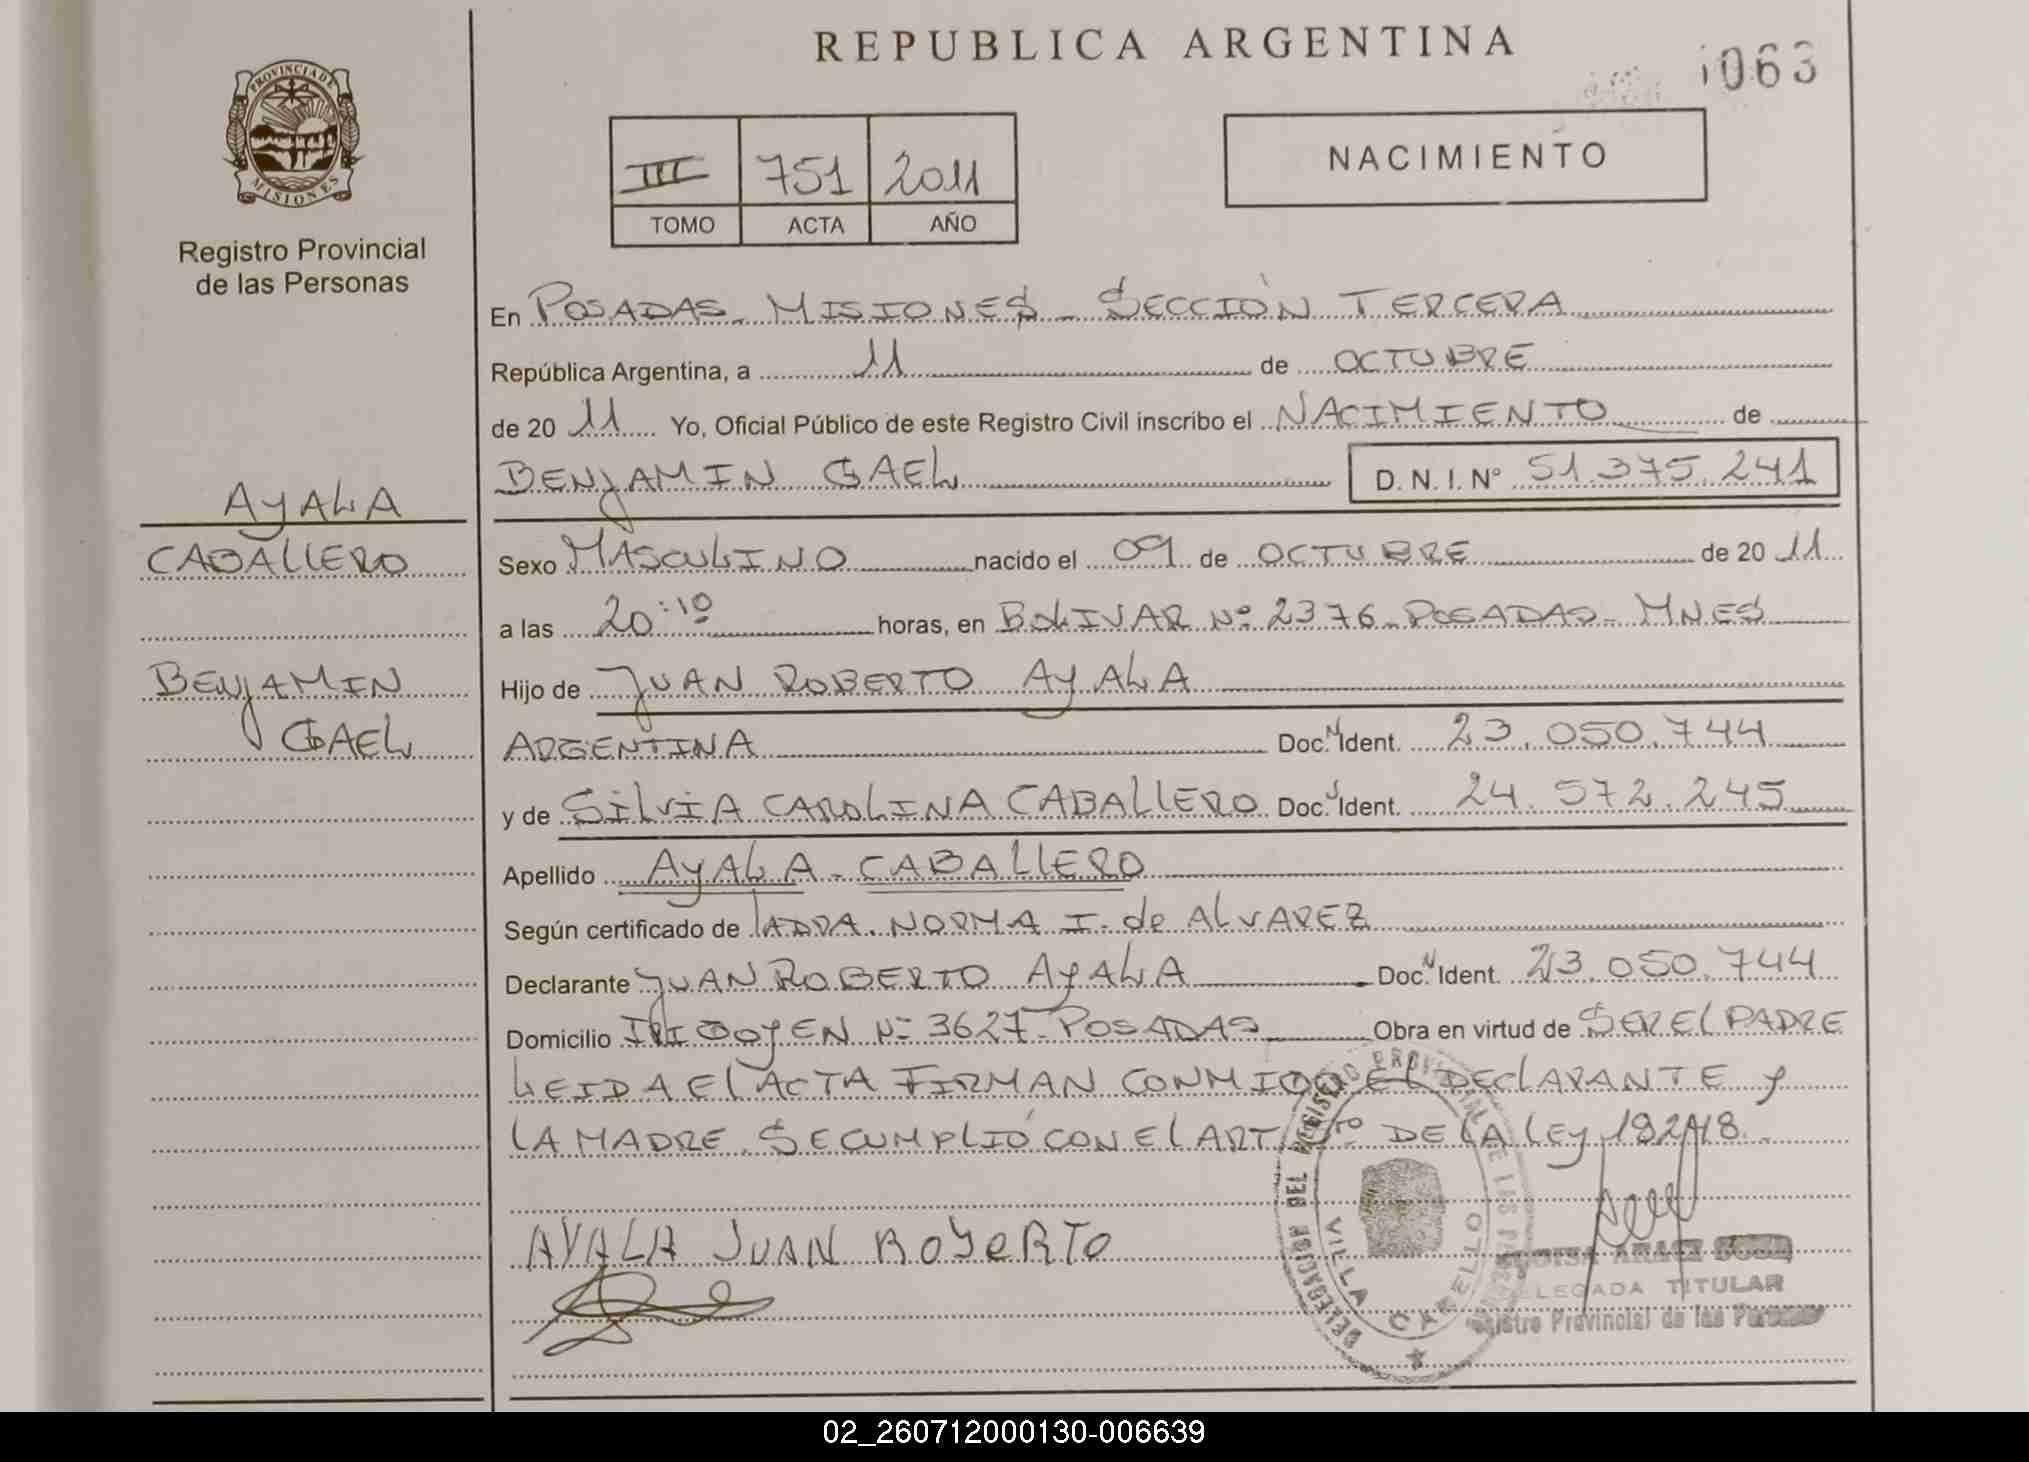 REPUBLICA ARGENTINA
1063
PROVINCIA DE
MISIONES
Registro Provincial
de las Personas
III 751 2011
TOMO ACTA AÑO
NACIMIENTO
En POSADAS - MISIONES - SECCIÓN TERCERA
República Argentina, a 11 de OCTUBRE
de 20 11 Yo, Oficial Público de este Registro Civil inscribo el NACIMIENTO de
BENJAMIN GAEL D. N. I. Nº 51.375.241
AYALA
CABALLERO
BENJAMIN
GAEL
Sexo MASCULINO nacido el 09 de OCTUBRE de 20 11
a las 20:10 horas, en BOLIVAR Nº 2376 - POSADAS - MNES
Hijo de JUAN ROBERTO AYALA
ARGENTINA Doc. N Ident. 23.050.744
y de SILVIA CAROLINA CABALLERO Doc. Ident. 24.572.245
Apellido AYALA - CABALLERO
Según certificado de LA DRA. NORMA I. de ALVAREZ
Declarante JUAN ROBERTO AYALA Doc. N Ident. 23.050.744
Domicilio Nº 3627 - POSADAS Obra en virtud de SER EL PADRE
LEIDA EL ACTA FIRMAN CONMIGO EL DECLARANTE y
LA MADRE. SE CUMPLIÓ CON EL ART DE LA LEY 18248.
AYALA JUAN ROBERTO
DELEGACION DEL REGISTRO PROVINCIAL DE LAS
VILLA CABELLO
TITULAR
Registro Provincial de las Personas
02_260712000130-006639